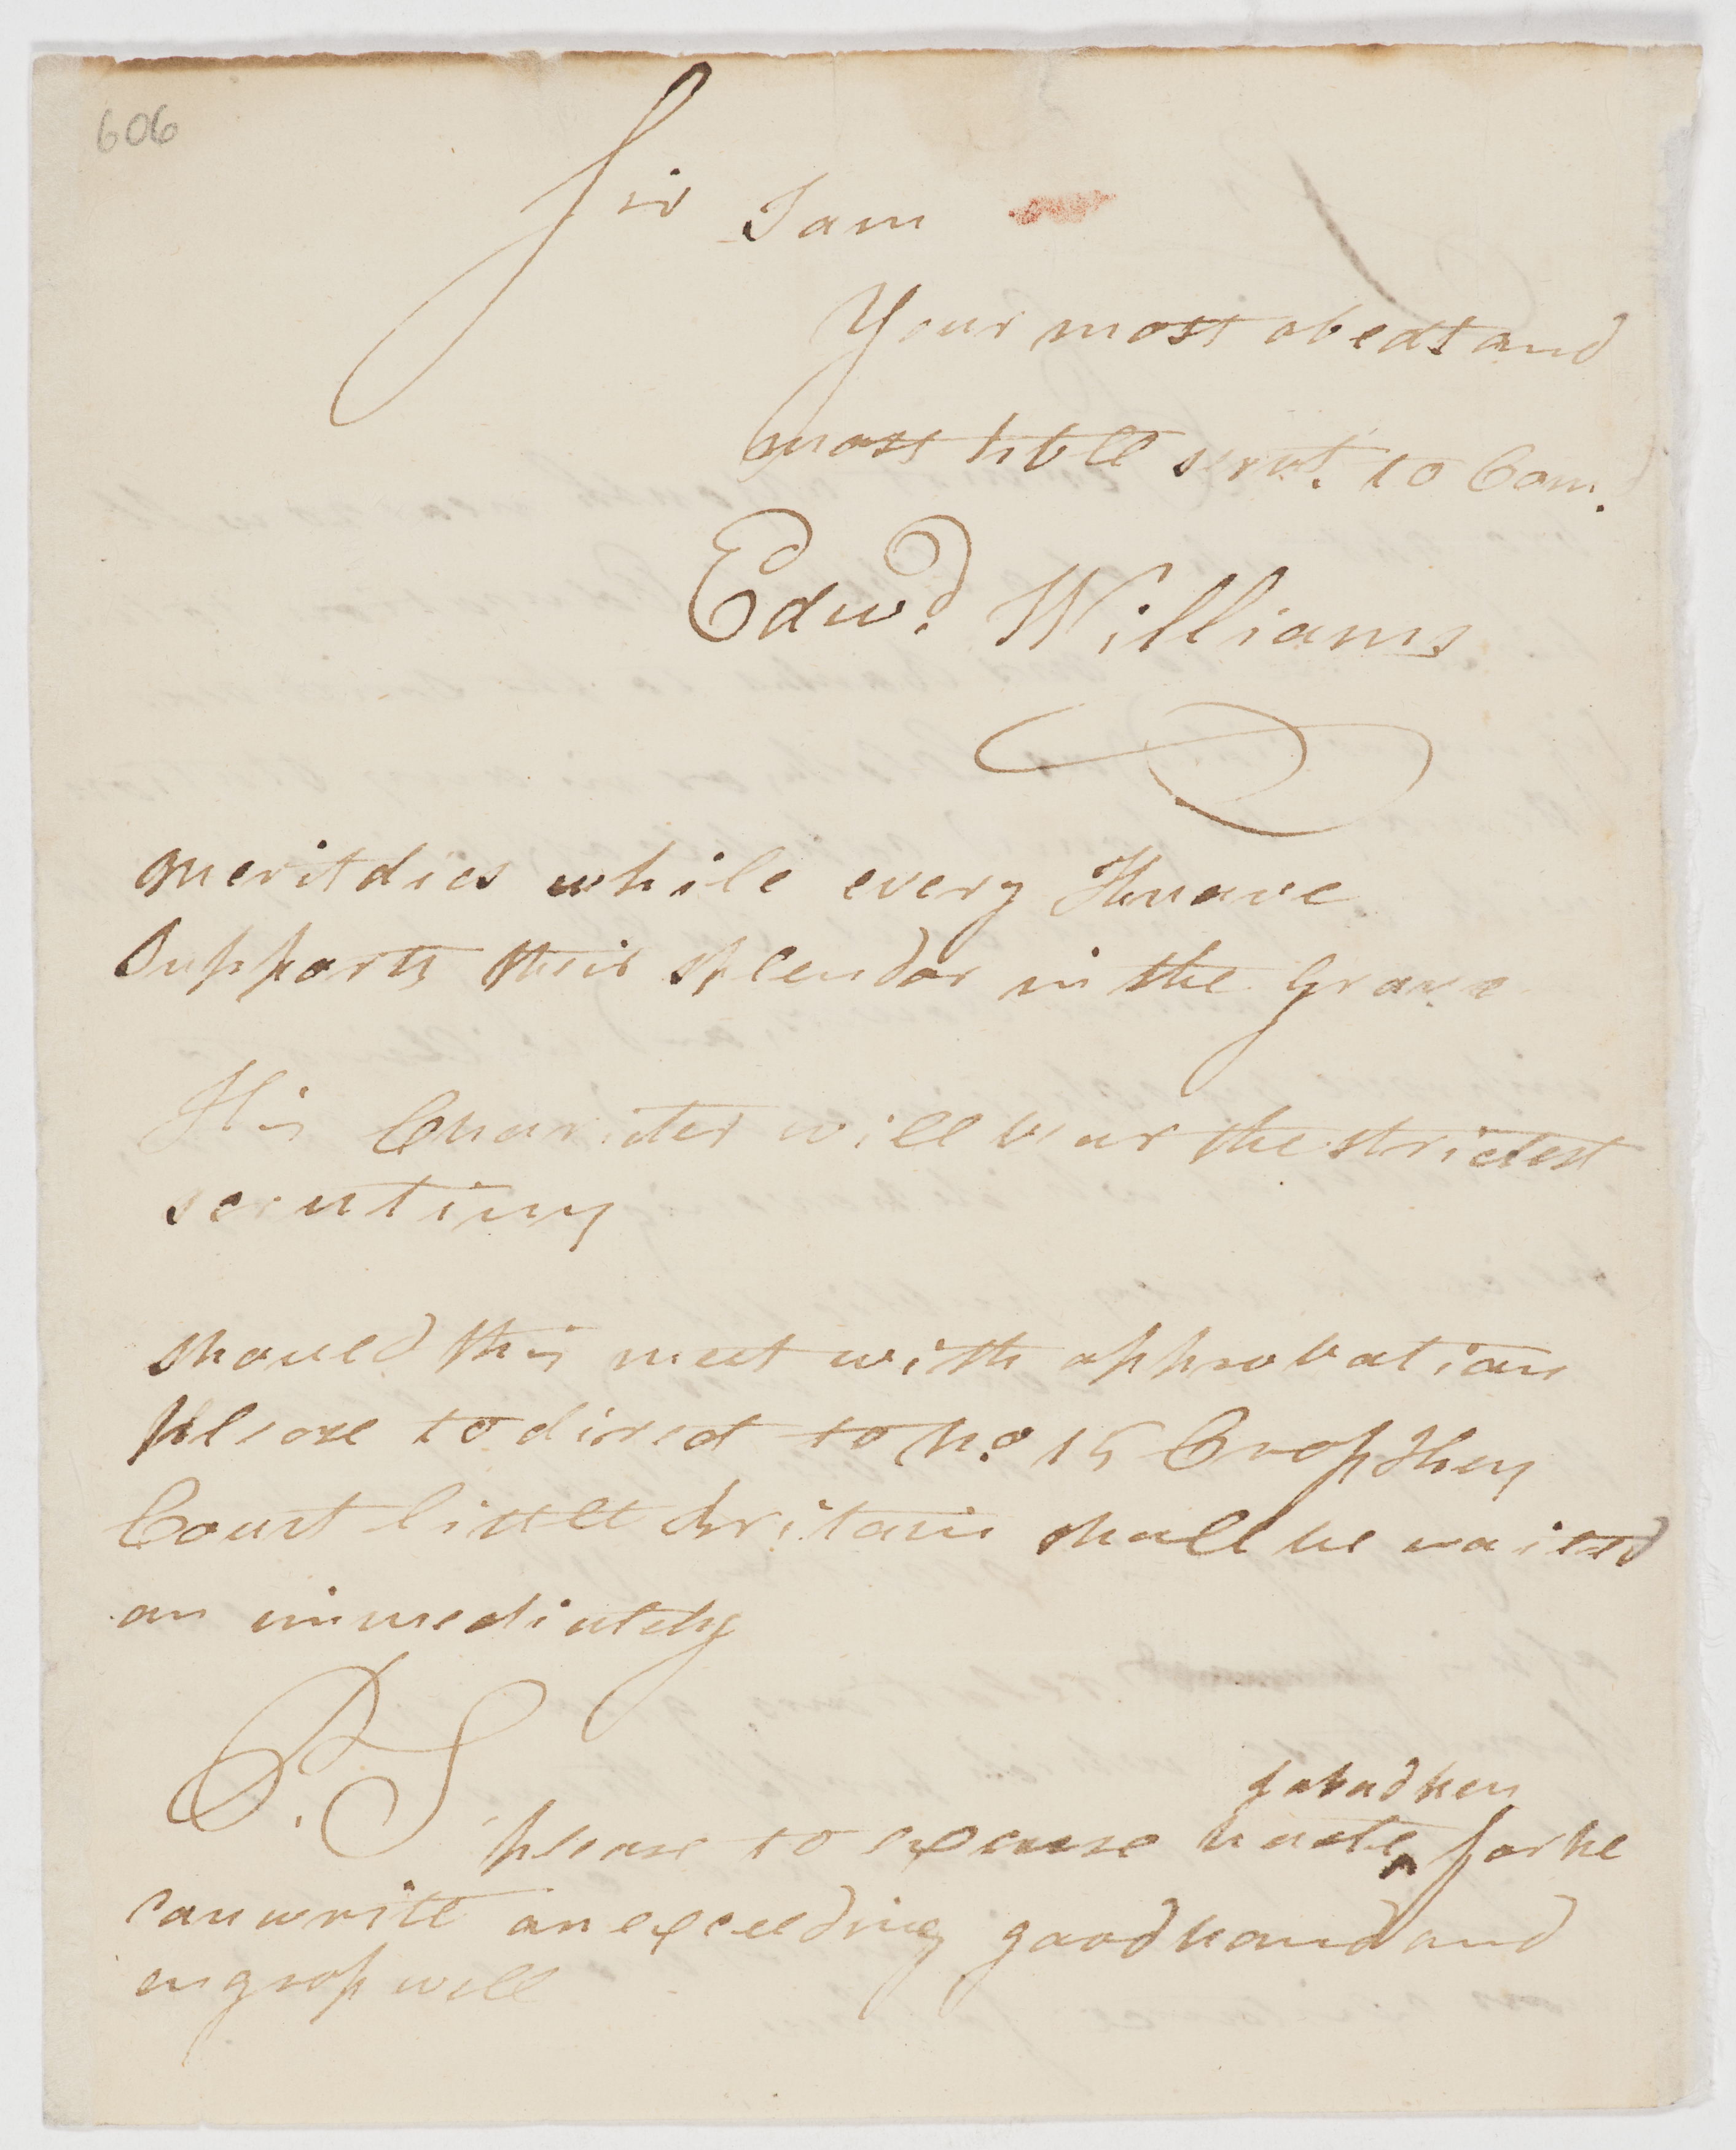 606
Sir I am
Your most obedt and
most hble servt. to Com.d
Edwd. Williams
merit dies while every Knave
Supports their splendor in the Grave
His Charicter will bear the strictest
scrutiny
should this meet with approbation
please to direct to No. 15 Cross Key
Court little Britain shall be waited
on immediately
P.S
please to excuse haste for he
can write an exceeding good hand and
engross well